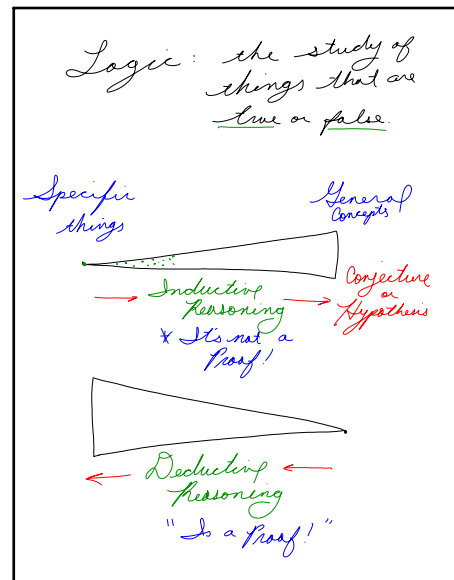 Logic: the study of
things that are
true or false.
Specific
things
General
Concepts
Inductive
Reasoning
Conjecture
or
Hypothesis
* It's not a
Proof!
Deductive
Reasoning
"Is a Proof!"